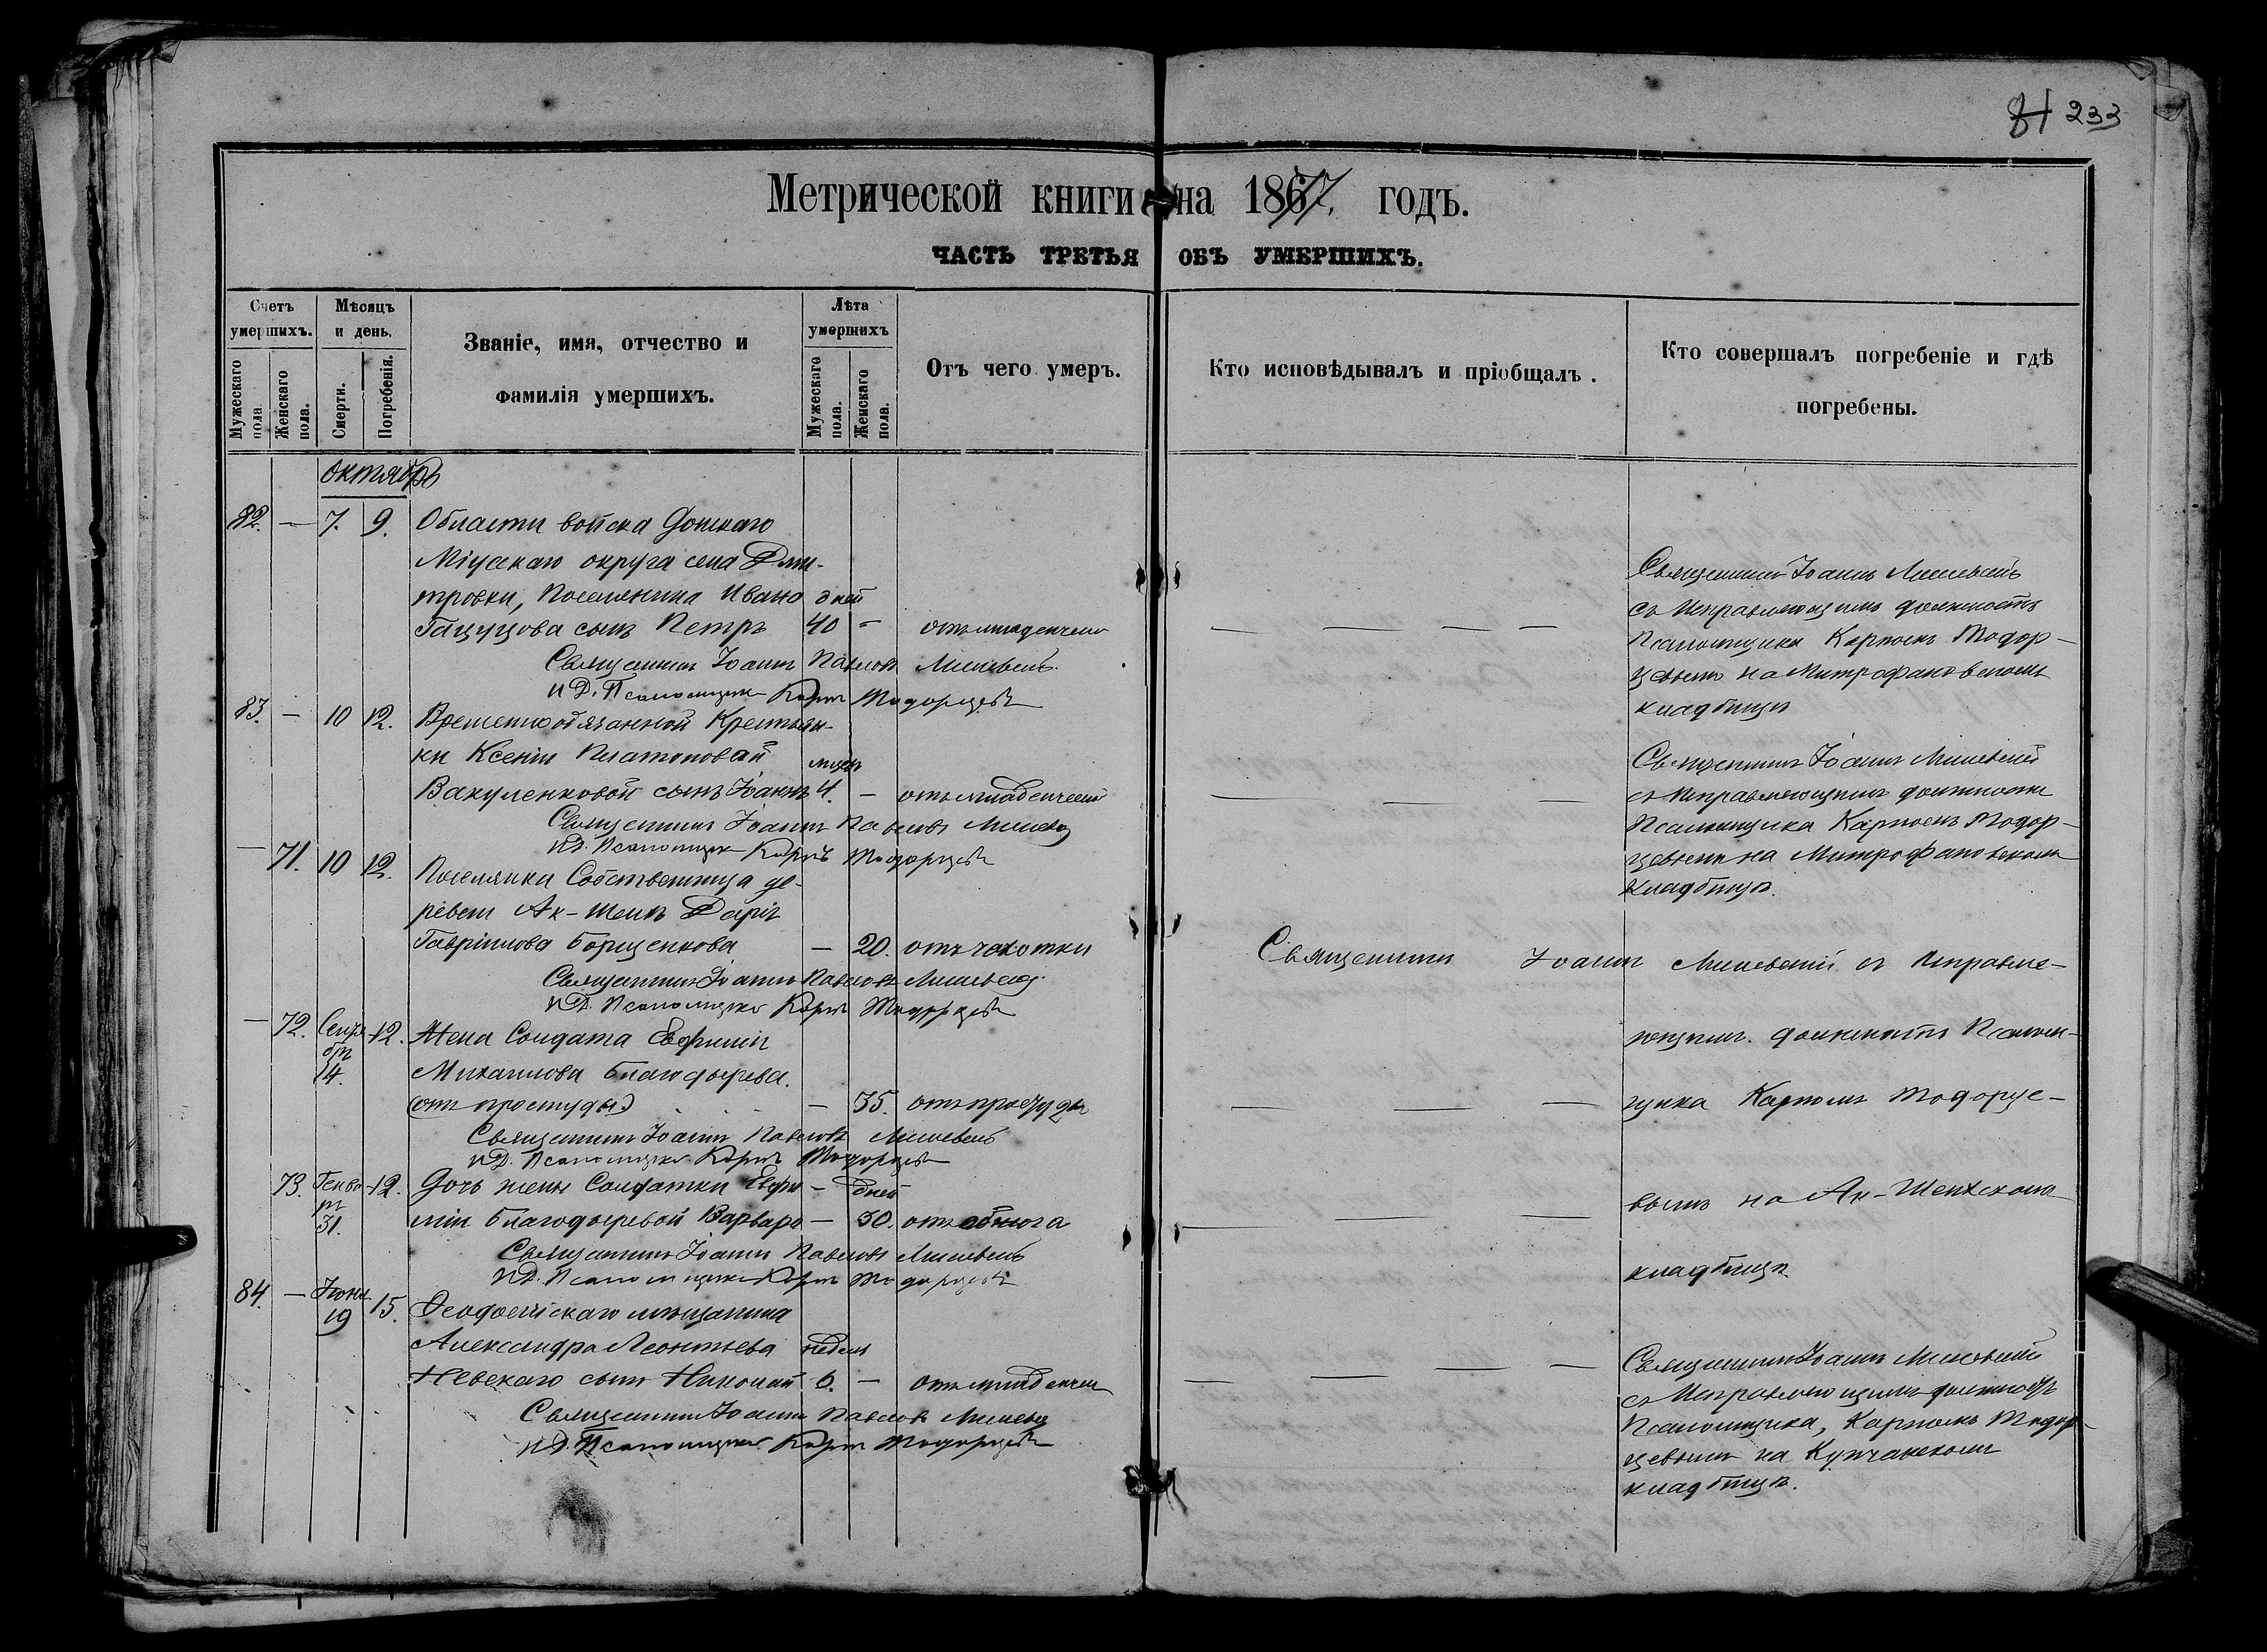 81 233
Метрической книги на 1867/77. годъ.
ЧАСТЬ ТРЕТЬЯ ОБЪ УМЕРШИХЪ.
Счетъ умершихъ.
Мужескаго пола
Женскаго пола.
Мѣсяцъ и день.
Смерти.
Погребенія.
Званіе, имя, отчество и
фамилія умершихъ.
Лѣта умершихъ
Мужескаго пола.
Женскаго пола.
Отъ чего умеръ.
Кто исповѣдывалъ и пріобщалъ.
Кто совершалъ погребеніе и гдѣ
погребены.
октябрь
82. — 7. 9. Области войска Донскаго
Міусскаго округа села Дми-
тровки, Поселянина Ивана дней
сынъ Петръ 40 — отъ младенческ
Священникъ Іоаннъ Павловъ
И.Д. Псаломщика Карпъ Тодорцевъ
Священникъ Іоаннъ
съ Исправляющимъ должность
Псаломщика Карпомъ Тодор-
цевымъ на Митрофановскомъ
кладбищѣ
83. — 10 12. Временнообязанной Крестьян-
ки Ксеніи Платоновой мцевъ
Вакуленковой сынъ Іоаннъ 4. — отъ младенческой
Священникъ Іоаннъ Павловъ
И.Д. Псаломщика Карпъ Тодорцевъ
Священникъ Іоаннъ
съ Исправляющимъ должность
Псаломщика Карпомъ Тодор-
цевымъ на Митрофановскомъ
кладбищѣ.
— 71. 10 12. Поселянка Собственница де-
ревни Ак-Шеихъ Дарія
Гавріилова Борщенкова — 20. отъ чахотки
Священникъ Іоаннъ Павловъ
И.Д. Псаломщика Карпъ Тодорцевъ
Священникъ Іоаннъ съ Исправля-
ющимъ должность Псалом-
щика Карпомъ Тодорце-
вымъ на Ак-Шеихскомъ
кладбищѣ
— 72. Сентября 14. 12. Жена Солдата Евфимія
Михаилова Благодырева.
(отъ простуды) — 35. отъ простуды
Священникъ Іоаннъ Павловъ
И.Д. Псаломщика Карпъ Тодорцевъ
73. Генваря 31. 12. Дочь жены Солдатки Евфи- — дней
міи Благодыревой Варвара — 30. отъ
Священникъ Іоаннъ Павловъ
И.Д. Псаломщика Карпъ Тодорцевъ
84. — 19 15. Ѳеодосійскаго мѣщанина
Александра Леонтьева недель
Невскаго сынъ Николай 6. — отъ младенческ
Священникъ Іоаннъ Павловъ
И.Д. Псаломщика Карпъ Тодорцевъ
Священникъ Іоаннъ
съ Исправляющимъ должность
Псаломщика, Карпомъ Тодор-
цевымъ на
кладбищѣ.